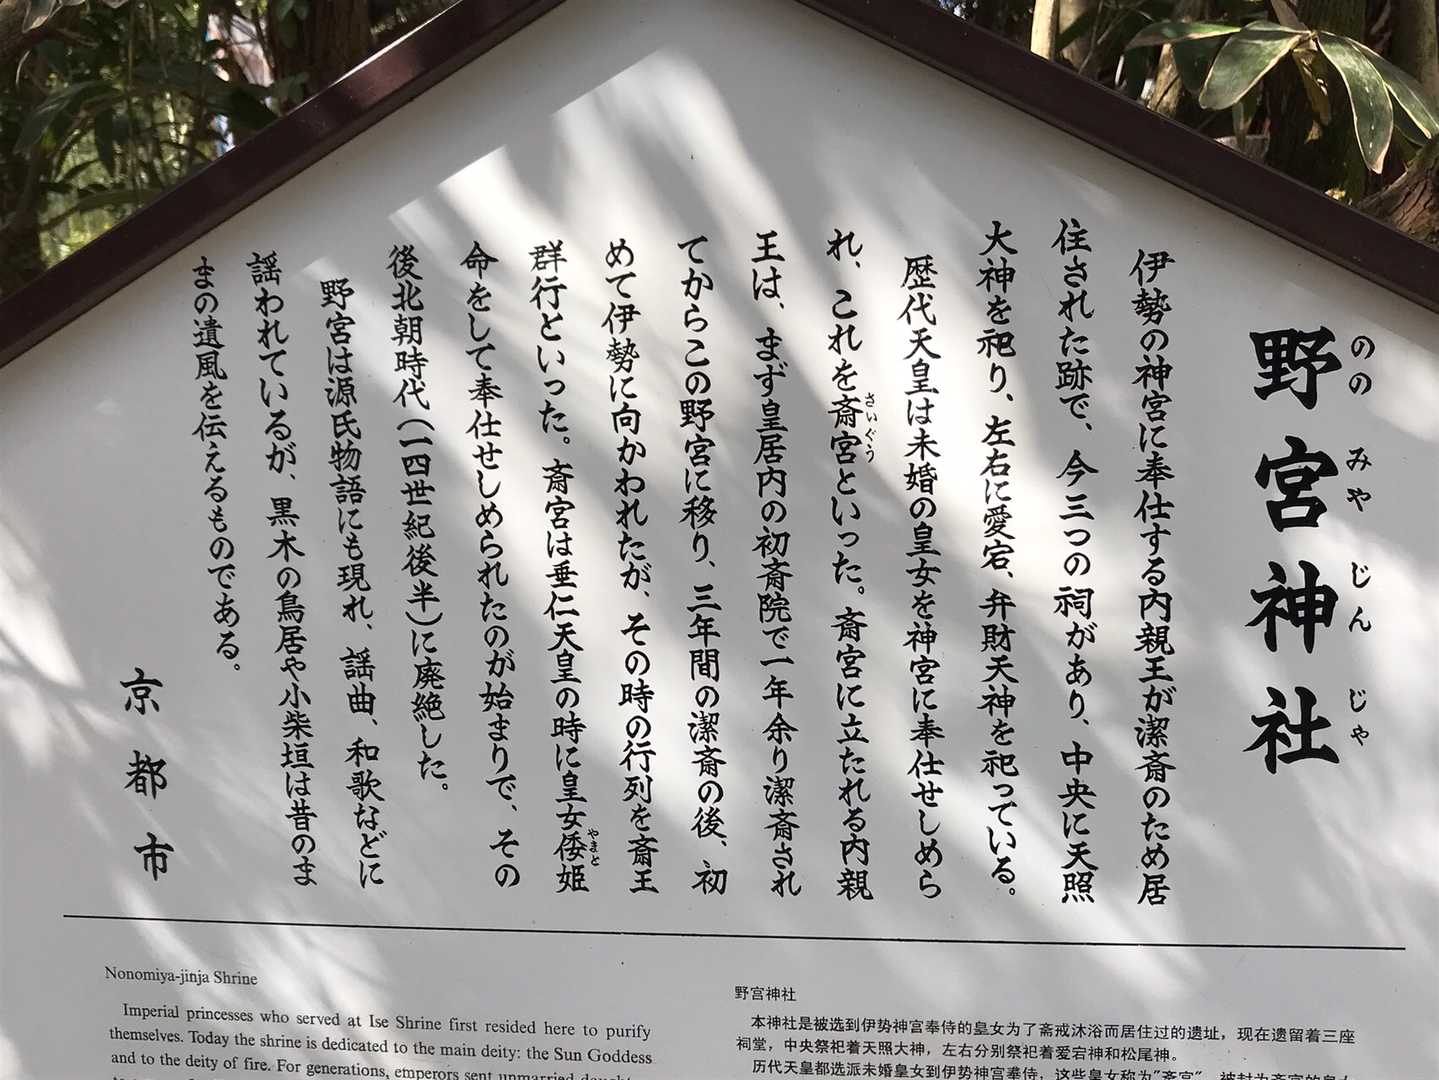 野宮神社
ののみやじんじゃ
伊勢の神宮に奉仕する内親王が潔斎のため居
住された跡で、今三つの祠があり、中央に天照
大神を祀り、左右に愛宕、弁財天神を祀っている。
歴代天皇は未婚の皇女を神宮に奉仕せしめら
れ、これを斎宮といった。斎宮に立たれる内親
さいぐう
王は、まず皇居内の初斎院で一年余り潔斎され
てからこの野宮に移り、三年間の潔斎の後、初
めて伊勢に向かわれたが、その時の行列を斎王
群行といった。斎宮は垂仁天皇の時に皇女倭姫
やまと
命をして奉仕せしめられたのが始まりで、その
後北朝時代(一四世紀後半)に廃絶した。
野宮は源氏物語にも現れ、謡曲、和歌などに
謡われているが、黒木の鳥居や小柴垣は昔のま
まの遺風を伝えるものである。
京都市
Nonomiya-jinja Shrine
Imperial princesses who served at Ise Shrine first resided here to purify
themselves. Today the shrine is dedicated to the main deity: the Sun Goddess
and to the deity of fire. For generations, emperors sent unmarried
野宫神社
本神社是被选到伊势神宫奉侍的皇女为了斋戒沐浴而居住过的遗址，现在遗留着三座
祠堂，中央祭祀着天照大神，左右分别祭祀着爱宕神和松尾神。
历代天皇都选派未婚皇女到伊势神宫奉侍，这些皇女称为"斋宫"，被封为斋宫的皇女